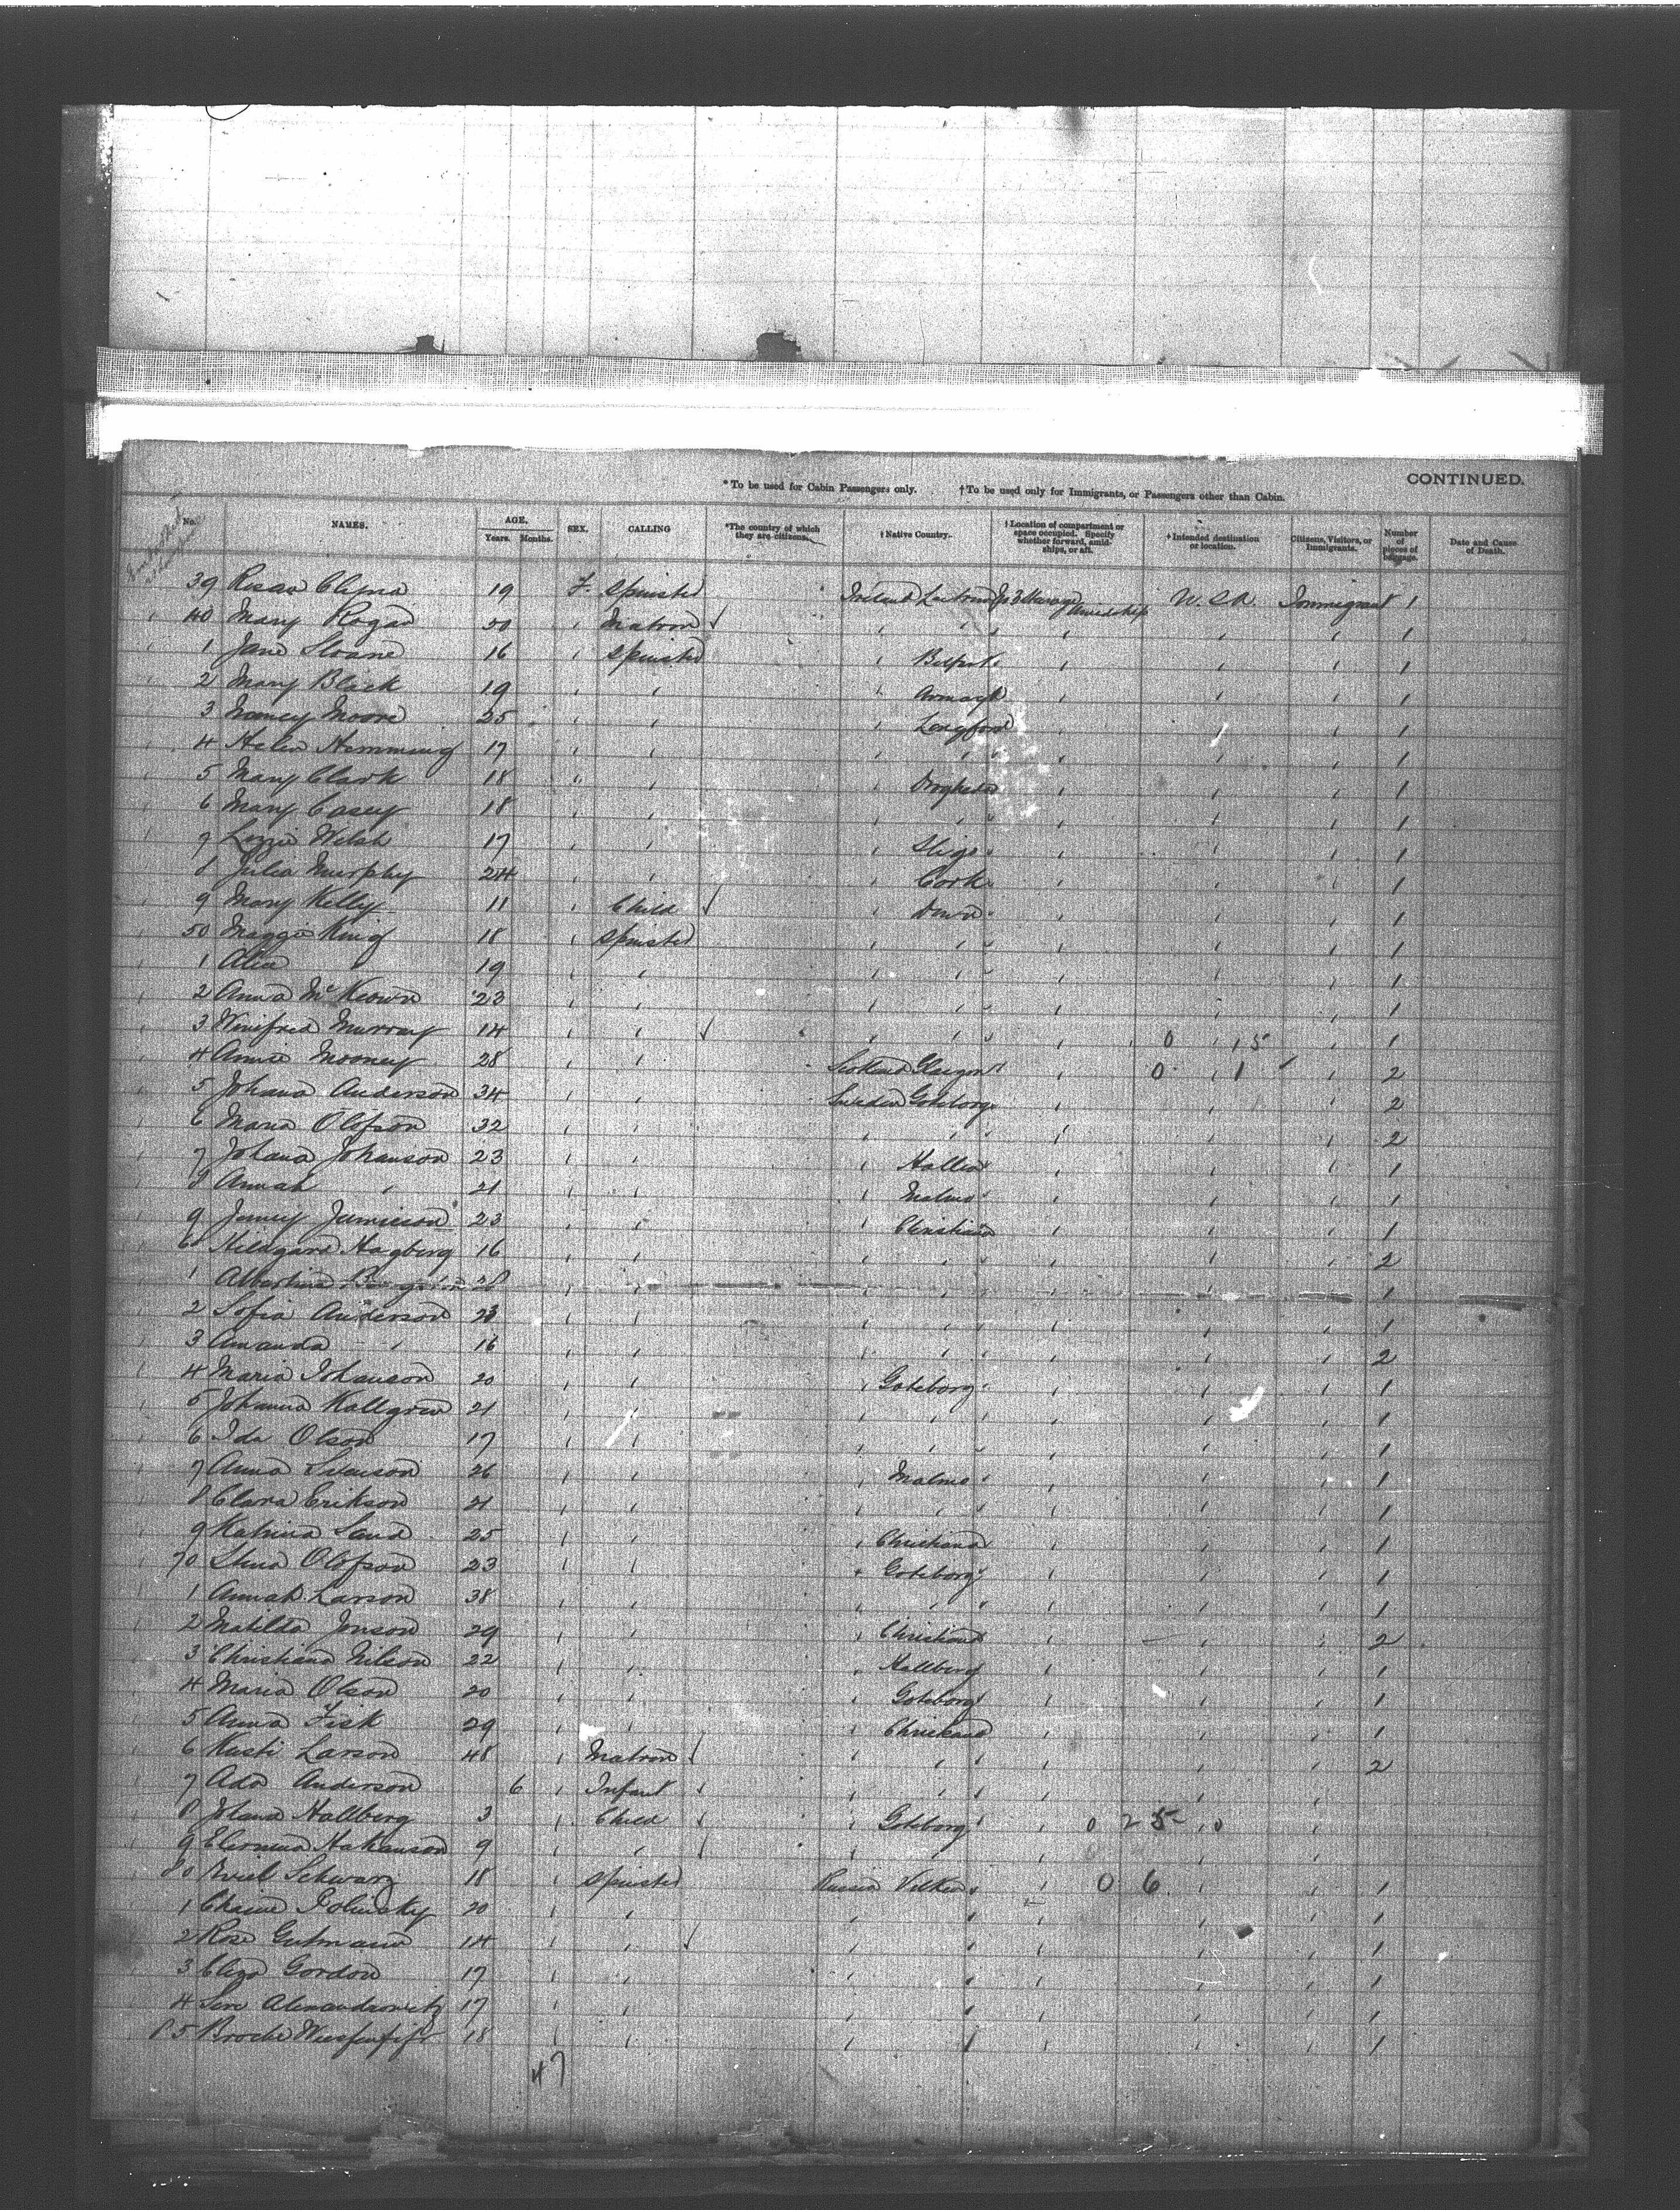 CONTINUED.
*To be used for Cabin Passengers only. †To be used only for Immigrants, or Passengers other than Cabin.
No. NAMES. AGE. Years. Months. SEX. CALLING *The country of which they are citizens. †Native Country. †Location of compartment or space occupied. Specify whether forward, amidships, or aft. †Intended destination or location. Citizens, Visitors, or Immigrants. Number of pieces of baggage. Date and Cause of Death.
39 19 F. Spinster Ireland Leitrim U.S.A. Immigrant 1
40 Mary Rogan 50 " Matron " " " " " 1
1 Jane Sloane 16 " Spinster " Belfast " " " 1
2 Mary Black 19 " " " Armagh " " " 1
3 Nancy Moore 25 " " " Longford " " " 1
4 Helen Hemming 17 " " " " " " " 1
5 Mary Clark 18 " " " Drogheda " " " 1
6 Mary Casey 18 " " " " " " " 1
7 Lizzie Welsh 17 " " " Sligo " " " 1
8 Julia Murphy 24 " " " Cork " " " 1
9 Mary Kelly 11 " Child " Down " " " 1
50 Maggie King 18 " Spinster " " " " " 1
1 19 " " " " " " " 1
2 Anna McKeown 23 " " " " " " " 1
3 Winifred Murray 14 " " " " " 0 15 " 1
4 Annie Mooney 28 " " Scotland Glasgow " 0 1 " 2
5 Johana Anderson 34 " " Sweden Goteborg " " " 2
6 Maria Olofson 32 " " " " " " " 2
7 Johana Johanson 23 " " " " " " 1
8 Annah " 21 " " " Malmo " " " 1
9 Jenny Jamieson 23 " " " Christiana " " " 1
6 Hildgard Hagberg 16 " " " " " " " 2
1 Albertina 28 " " " " " " " 1
2 Sofia Anderson 23 " " " " " " " 1
3 Amanda " 16 " " " " " " " 2
4 Maria Johanson 20 " " " Goteborg " " " 1
5 Johanna Kallgren 21 " " " " " " " 1
6 Ida Olson 17 " " " " " " " 1
7 Anna 26 " " " Malmo " " " 1
8 Clara Erikson 21 " " " " " " " 1
9 Katrina 25 " " " Christiana " " " 1
70 Olofson 23 " " " Goteborg " " " 1
1 Annah Larson 38 " " " " " " " 1
2 Matilda Jonson 29 " " " Christiana " " " 2
3 Christiana Nilson 22 " " " Hallberg " " " 1
4 Maria Olson 20 " " " Goteborg " " " 1
5 Anna Fisk 29 " " " Christiana " " " 1
6 Larson 48 " Matron " " " " " 2
7 Ada Anderson 6 " Infant " " " " "
8 Johana Hallberg 3 " Child " Goteborg " 0 25 0 "
9 Hakanson 9 " " " " " " "
80 Schwarz 18 Spinster Russia " 0 6 " " 1
1 20 " " " " " " " 1
2 Rosa Gutmann 14 " " " " " " " 1
3 Gordon 17 " " " " " " " 1
4 Alexandrowitz 17 " " " " " " " 1
85 18 " " " " " " " 1
47